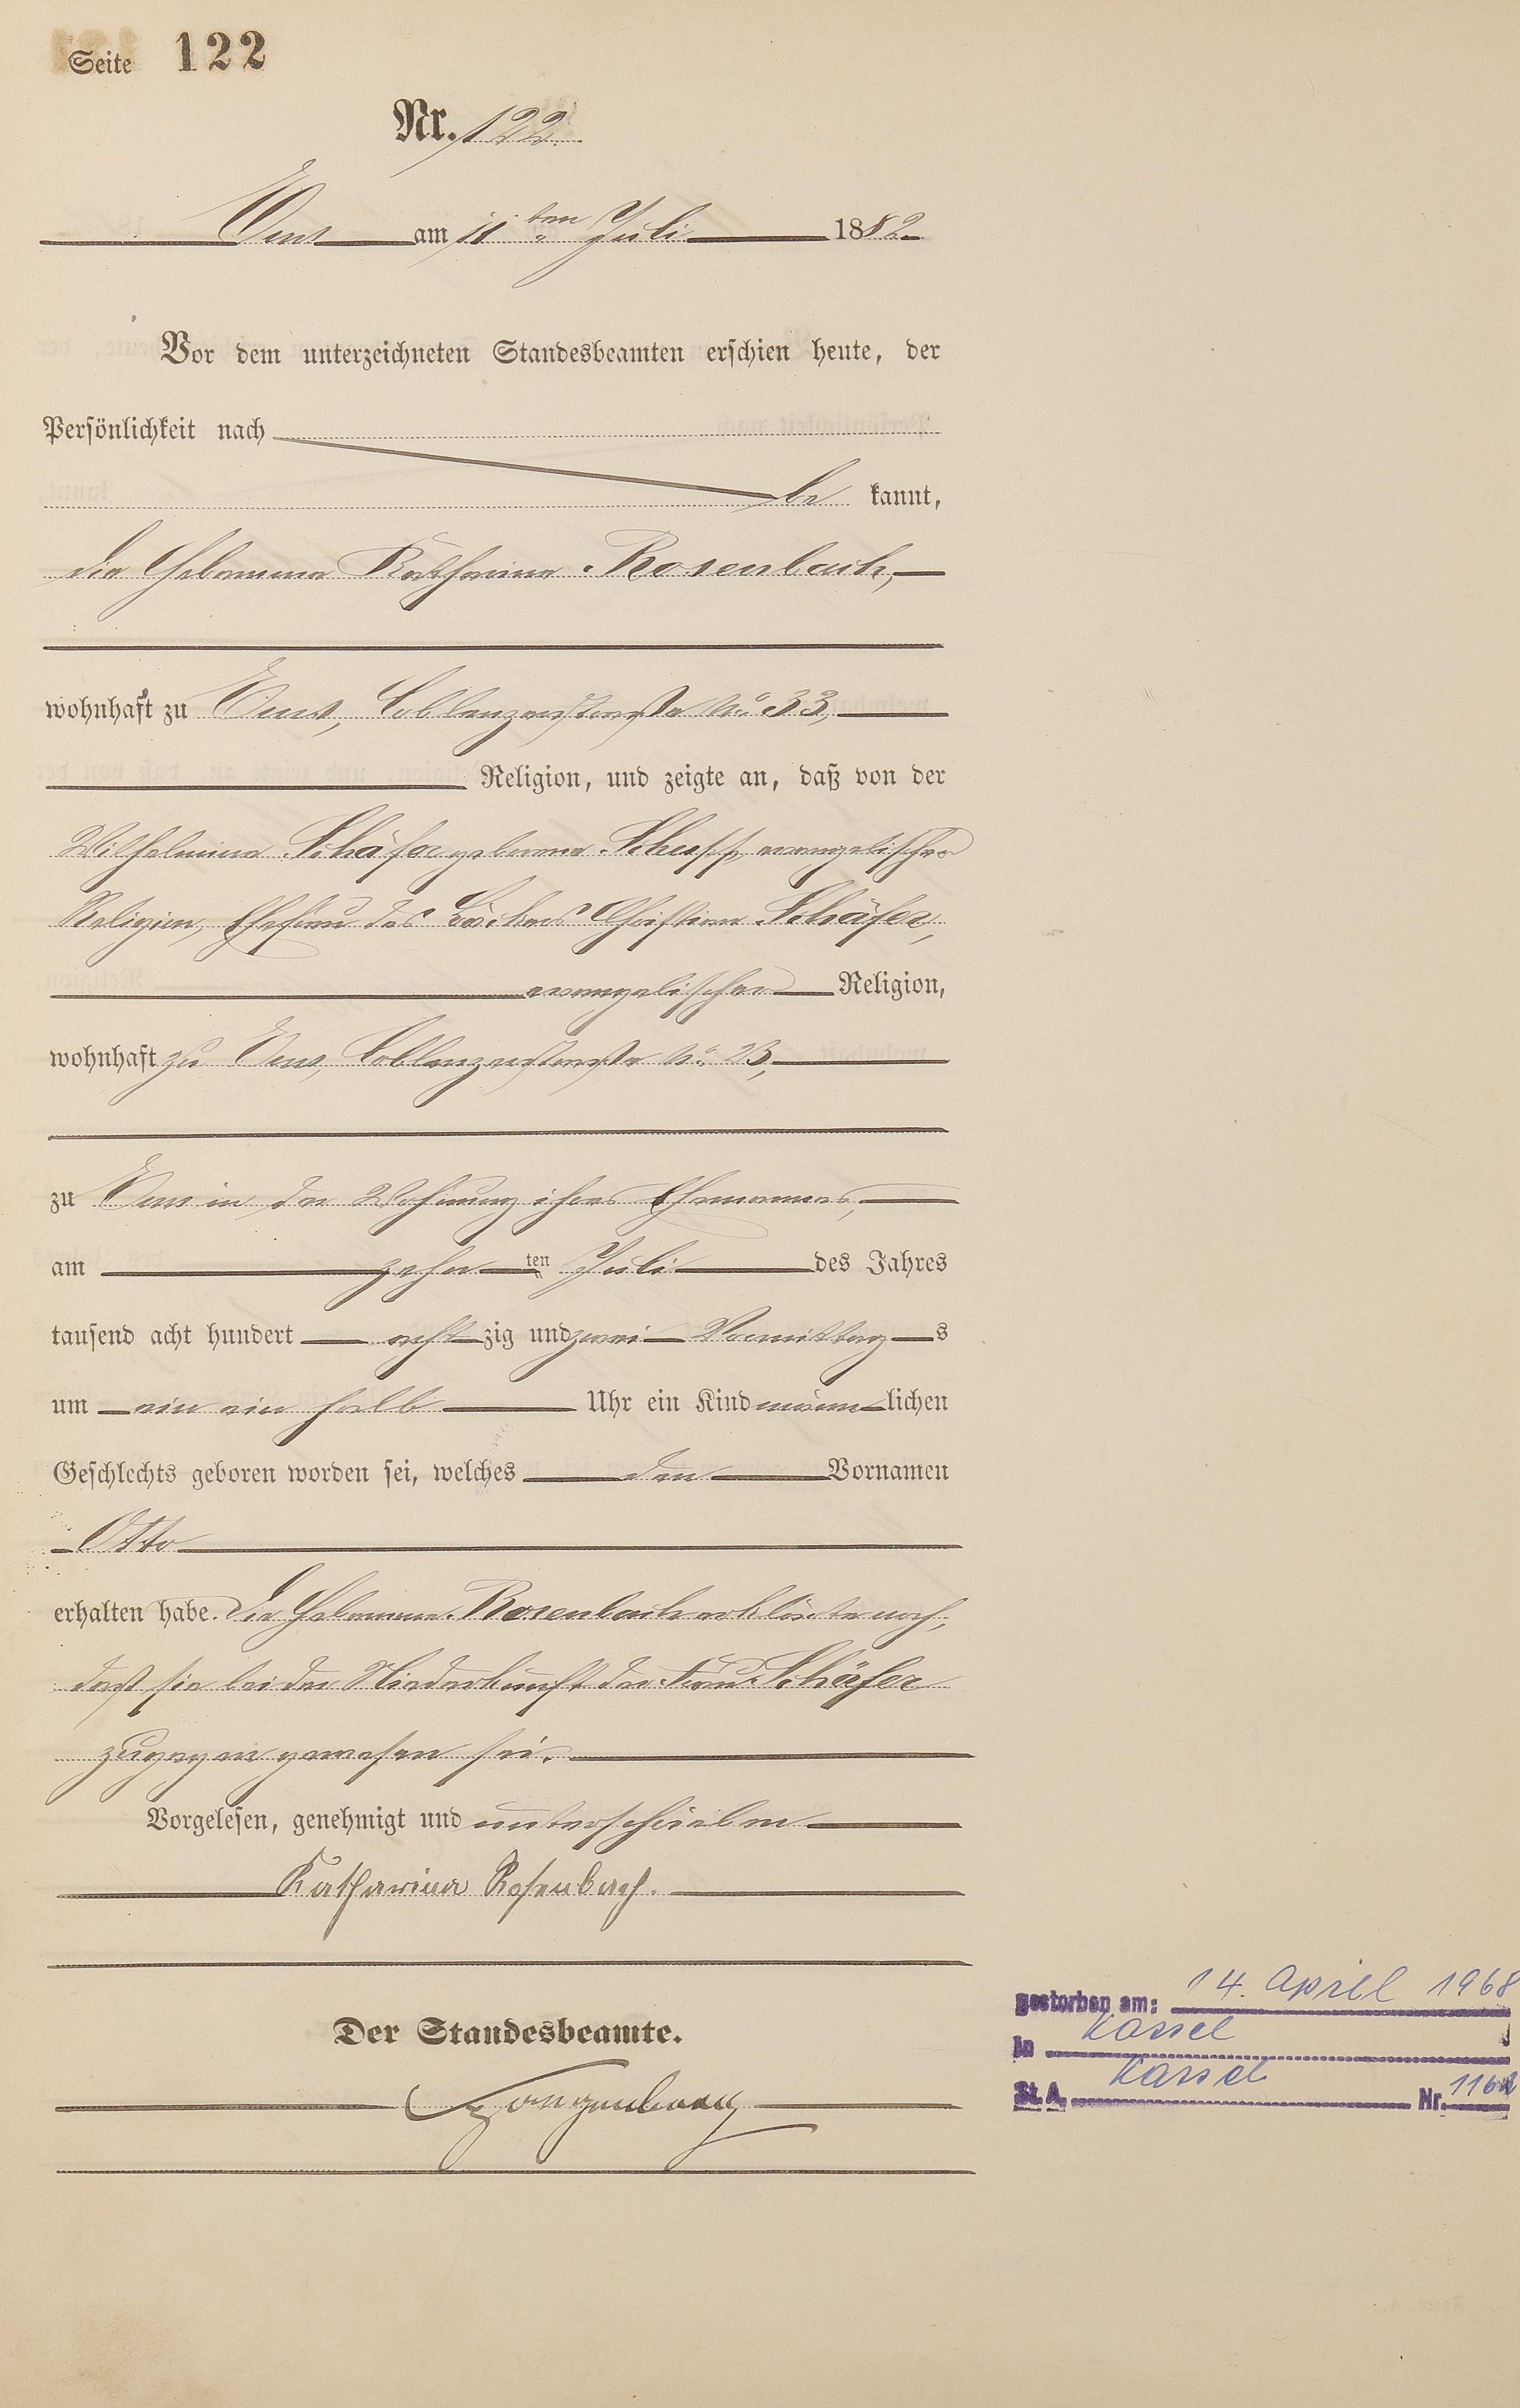 Seite 122
Nr. 122.
Ems am 11ten Juli 1882
Vor dem unterzeichneten Standesbeamten erschien heute, der
Persönlichkeit nach
be kannt,
die Hebamme Katharina Rosenbach,
wohnhaft zu Ems, Coblenzerstraße No 33,
Religion, und zeigte an, daß von der
Wilhelmine Schäfer geborene evangelischer
Religion, Ehefrau des Bäckers Christian Schäfer,
evangelischer Religion,
wohnhaft zu Ems, Coblenzerstraße No 23,
zu Ems in der Wohnung ihres Ehemannes,
am zehn ten Juli des Jahres
tausend acht hundert acht zig und zwei Vormittag s
um ein ein halb Uhr ein Kind männ lichen
Geschlechts geboren worden sei, welches den Vornamen
Otto
erhalten habe. Die Hebamme Rosenbach erklärte noch,
daß sie bei der Niederkunft der Frau Schäfer
zugegen gewesen sei.
Vorgelesen, genehmigt und unterschrieben
Katharina Rosenbach.
Der Standesbeamte.
gestorben am: 14. April 1968
in Kassel
St. A. Kassel Nr.